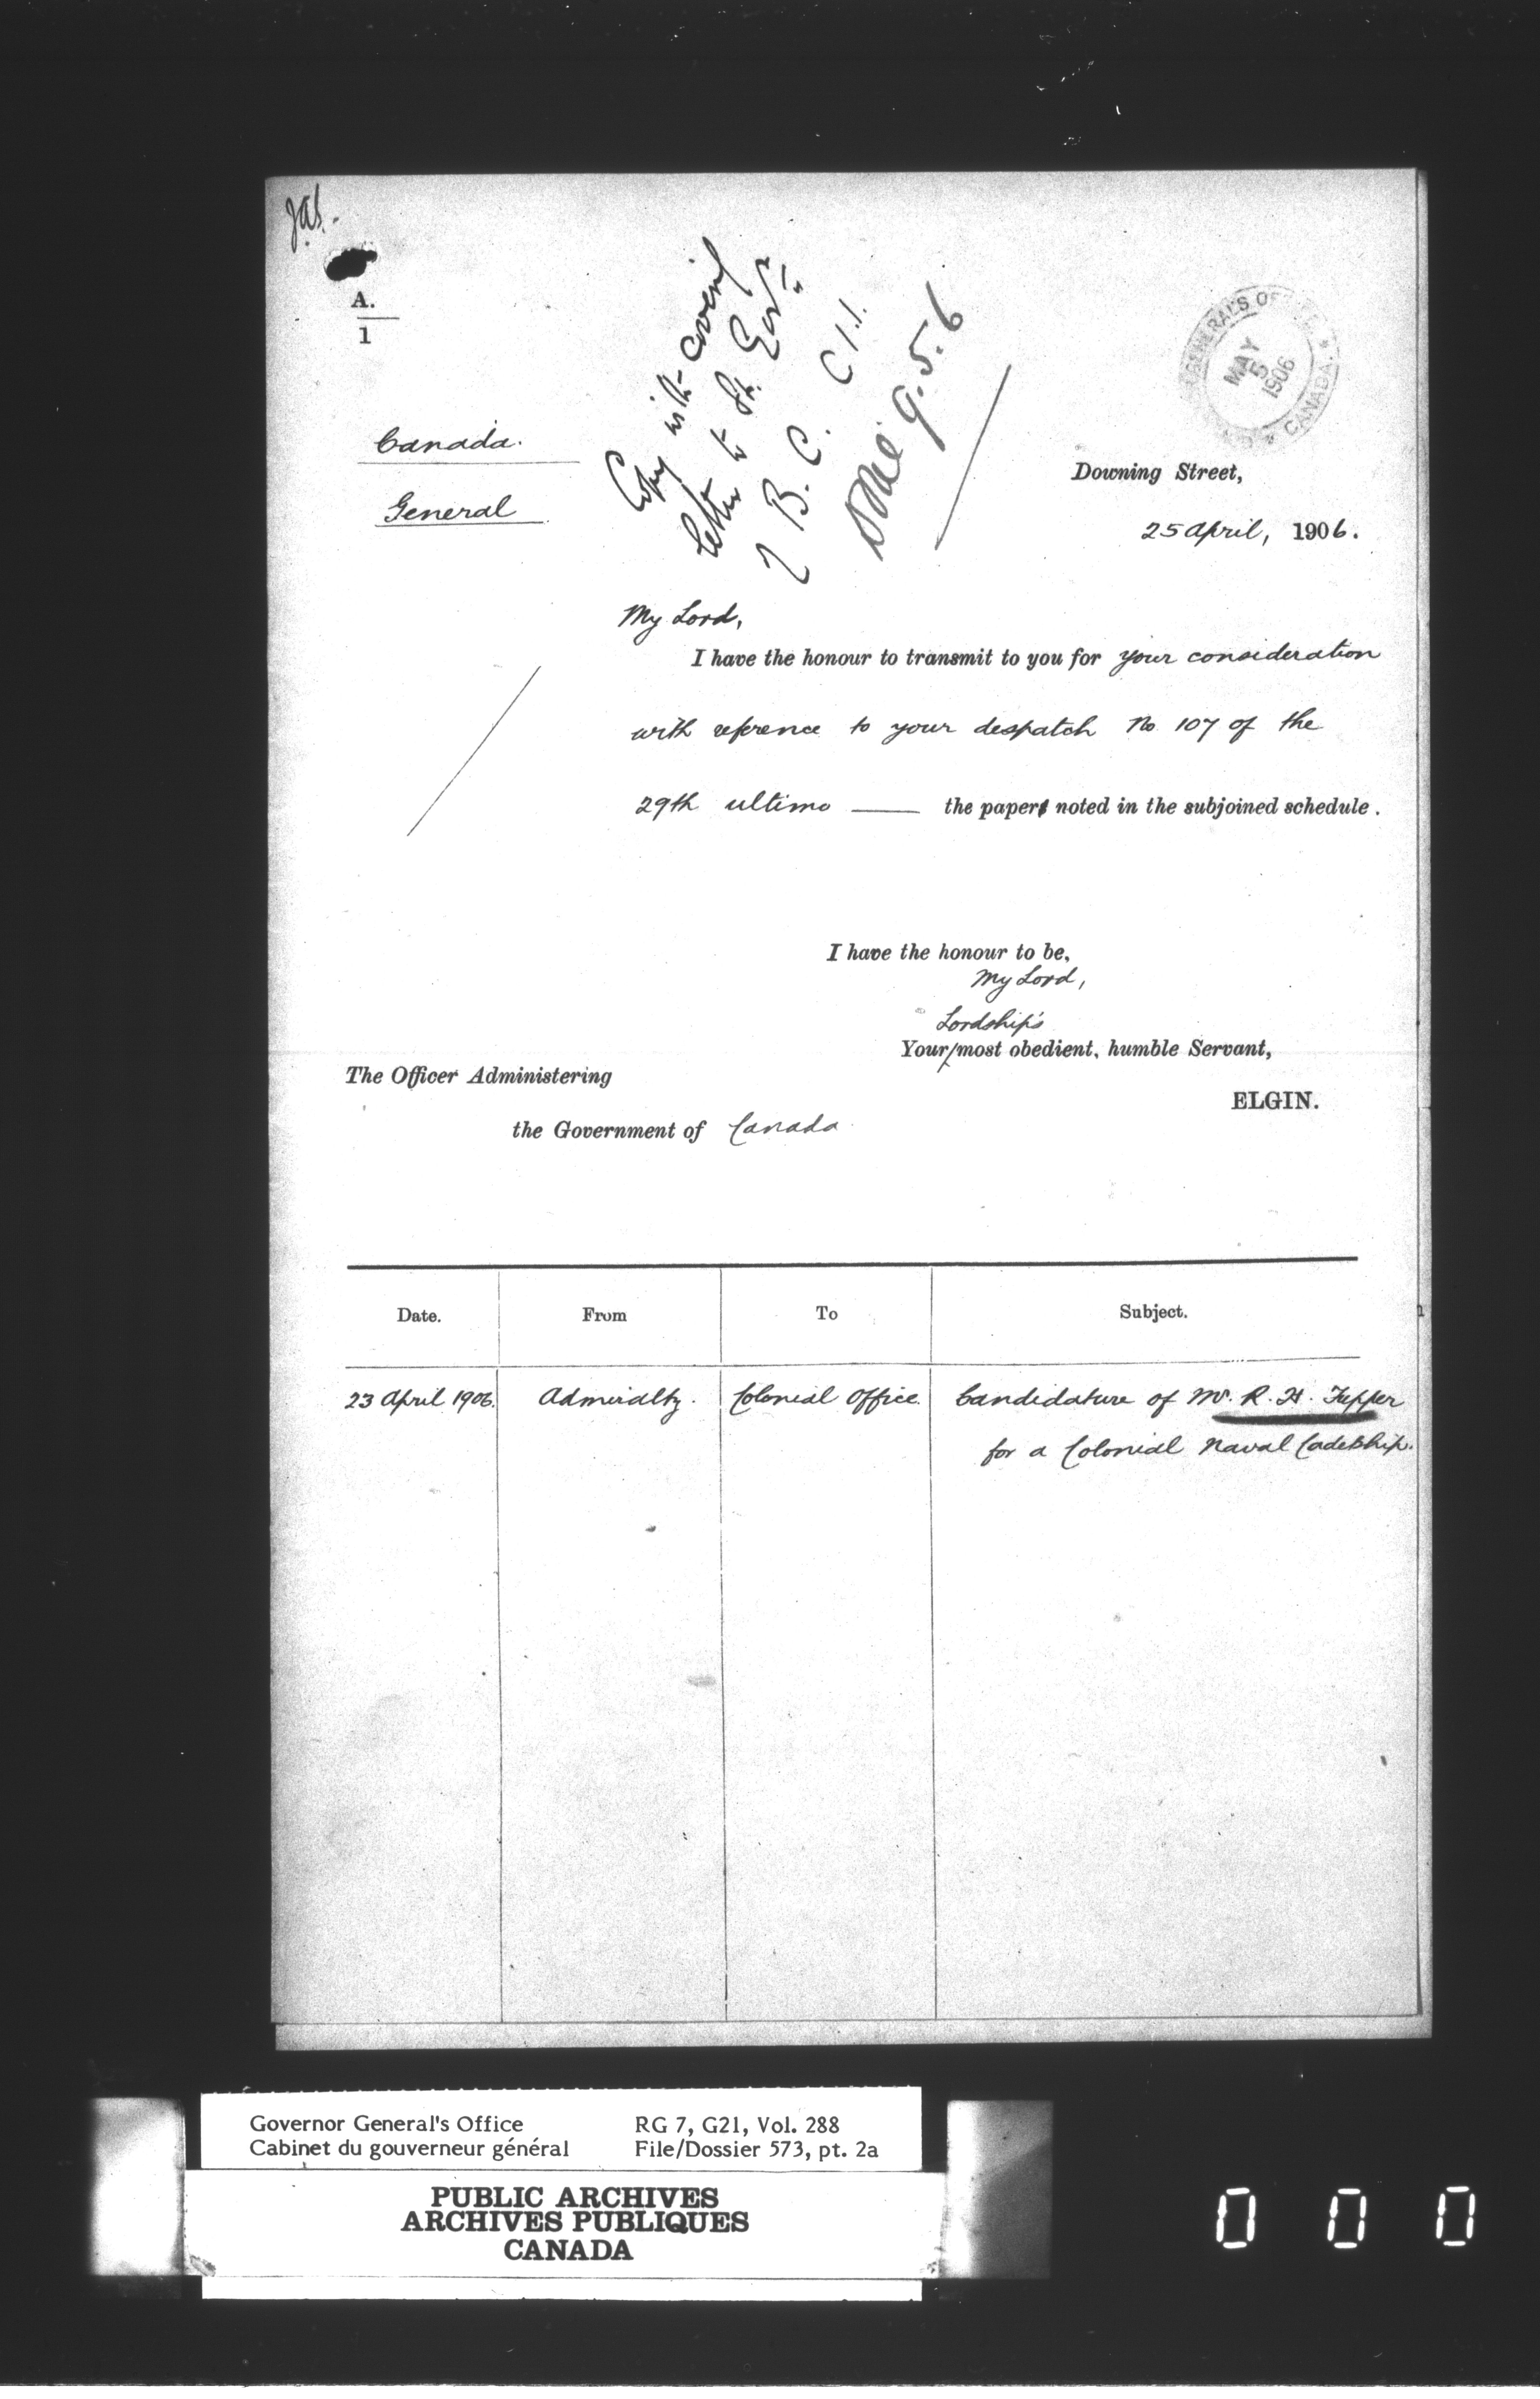 A.
1
Canada.
General
Copy with covering
letter to Lt. Govr
of B. C.
done 9.5.6
GENERAL'S OFFICE
MAY
5
1906
CANADA
Downing Street,
25 April, 1906.
My Lord,
I have the honour to transmit to you for your consideration
with reference to your despatch No 107 of the
29th ultimo — the paper noted in the subjoined schedule.
I have the honour to be,
My Lord,
Lordship's
Your/most obedient, humble Servant,
ELGIN.
The Officer Administering
the Government of Canada
Date. From To Subject.
23 April 1906. Admiralty. Colonial Office. Candidature of Mr. R. H. Tupper
for a Colonial Naval Cadetship.
Governor General's Office RG 7, G21, Vol. 288
Cabinet du gouverneur général File/Dossier 573, pt. 2a
PUBLIC ARCHIVES
ARCHIVES PUBLIQUES
CANADA
0 0 0